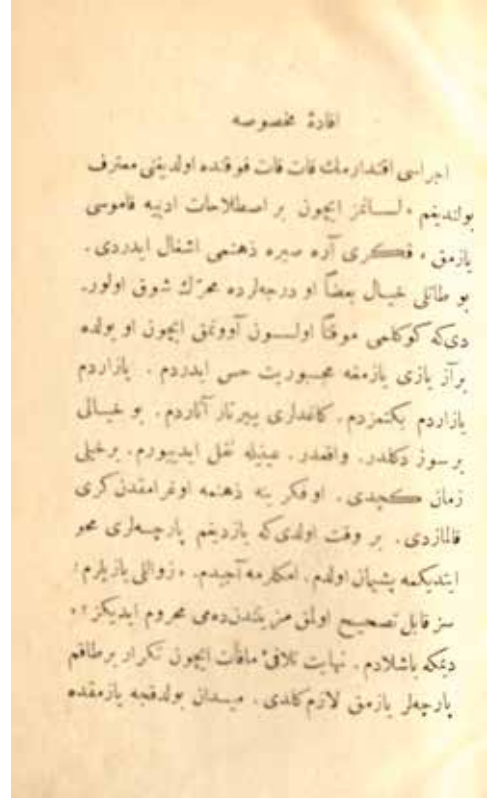 افادهٔ مخصوصه
اجراسی اقتدارمك قات قات فوقنده اولدیغنی معترف
بولندیغم «لسانمز ایچون بر اصطلاحات ادبیه قاموسی
یازمق» فكری آره صیره ذهنمی اشغال ایدردی.
بو طاتلی خیال بعضاً او درجه‌لرده محرّك شوق اولور-
دی‌كه كوكلمی موقتاً اولسون آوونمق ایچون او یولده
برآز یازی یازمغه مجبوریت حس ایدردم. یازاردم
یازاردم بكنمزدم. كاغدلری ییرتار آتاردم. بو خیالی
بر سوز دكلدر. واقعدر. عینیله نقل ایدییورم. برخیلی
زمان كچدی. اوفكر ینه ذهنمه اوغرامقدن كری
قالمازدی. بر وقت اولدی‌كه یازدیغم پارچه‌لری محو
ایتدیكمه پشیمان اولدم. امكلرمه آجیدم. «زواللی یازیلرم!
سز قابل تصحیح اولمق مزیتندن‌ده‌می محروم ایدیكز؟»
دیمكه باشلادم. نهایت تلافیٔ مافات ایچون تكرار برطاقم
پارچه‌لر یازمق لازم كلدی. میدان بولدقجه یازمقده